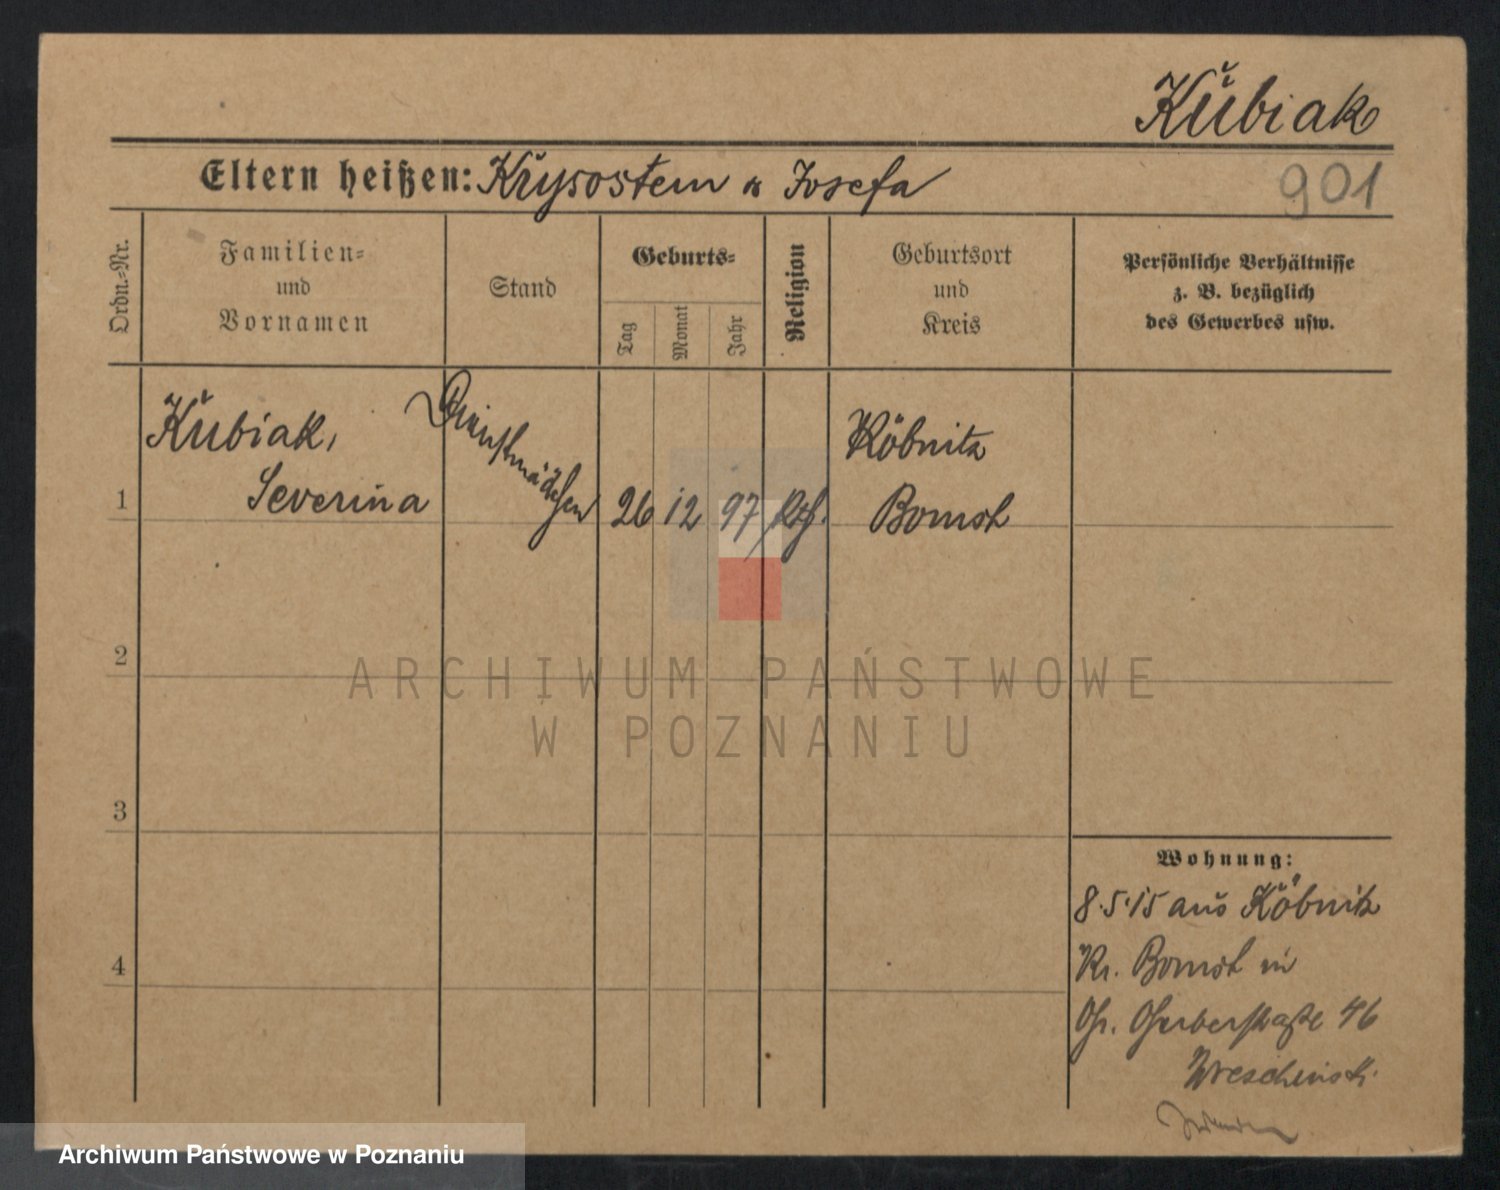 Kubiak
Eltern heißen: Krysostem u Josefa
901
Ordn.-Nr.
Familien-
und
Vornamen
Stand
Geburts-
Tag
Monat
Jahr
Religion
Geburtsort
und
Kreis
Persönliche Verhältnisse
z. B. bezüglich
des Gewerbes usw.
1
Kubiak,
Severina
Dienstmädchen
26
12
97
kth.
Köbnitz
Bomst
2
3
4
Wohnung:
8.5.15 aus Köbnitz
Kr. Bomst in
Gr. Gerberstraße 46
ARCHIWUM PAŃSTWOWE
W POZNANIU
Archiwum Państwowe w Poznaniu